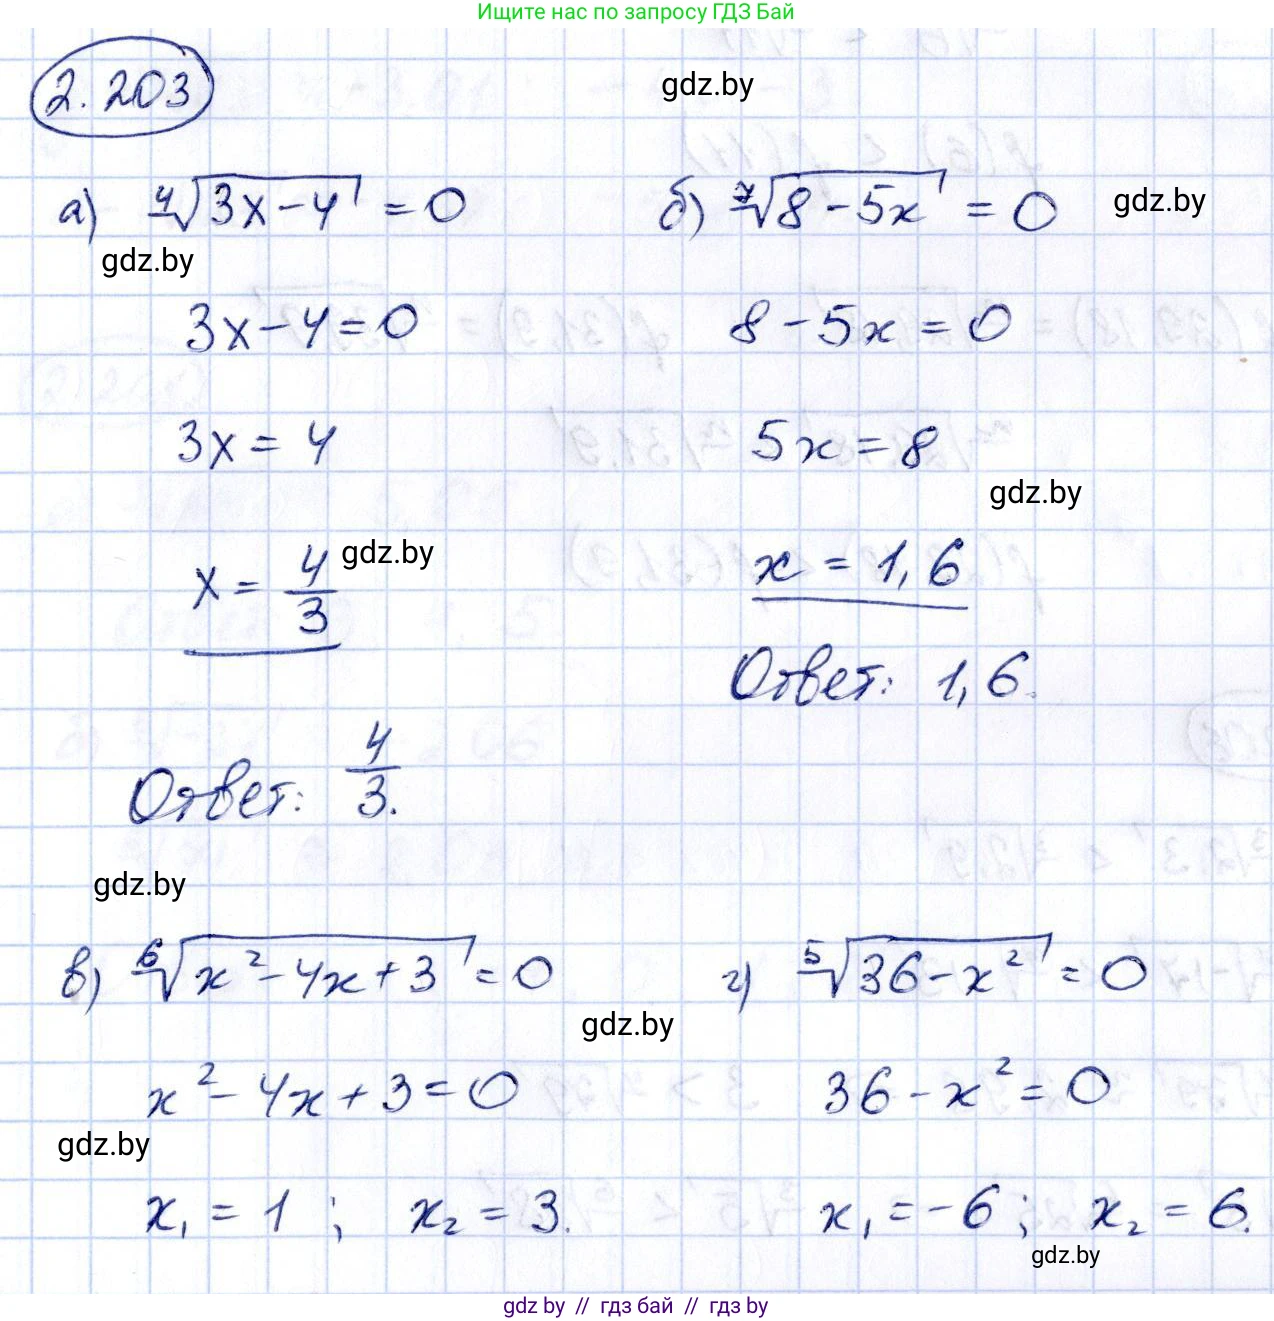 Ищите нас по запросу ГДЗ Бай
2.203
gdz.by
а) ⁴√(3x-4) = 0
б) ⁷√(8-5x) = 0
gdz.by
gdz.by
3x-4=0
8-5x=0
3x=4
5x=8
gdz.by
x = 4/3
gdz.by
x = 1,6
Ответ: 1,6.
Ответ: 4/3.
gdz.by
в) ⁶√(x²-4x+3) = 0
г) ⁵√(36-x²) = 0
gdz.by
x²-4x+3=0
36-x²=0
gdz.by
x₁ = 1 ; x₂ = 3.
x₁ = -6 ; x₂ = 6.
gdz.by
gdz by // гдз бай // gdz by